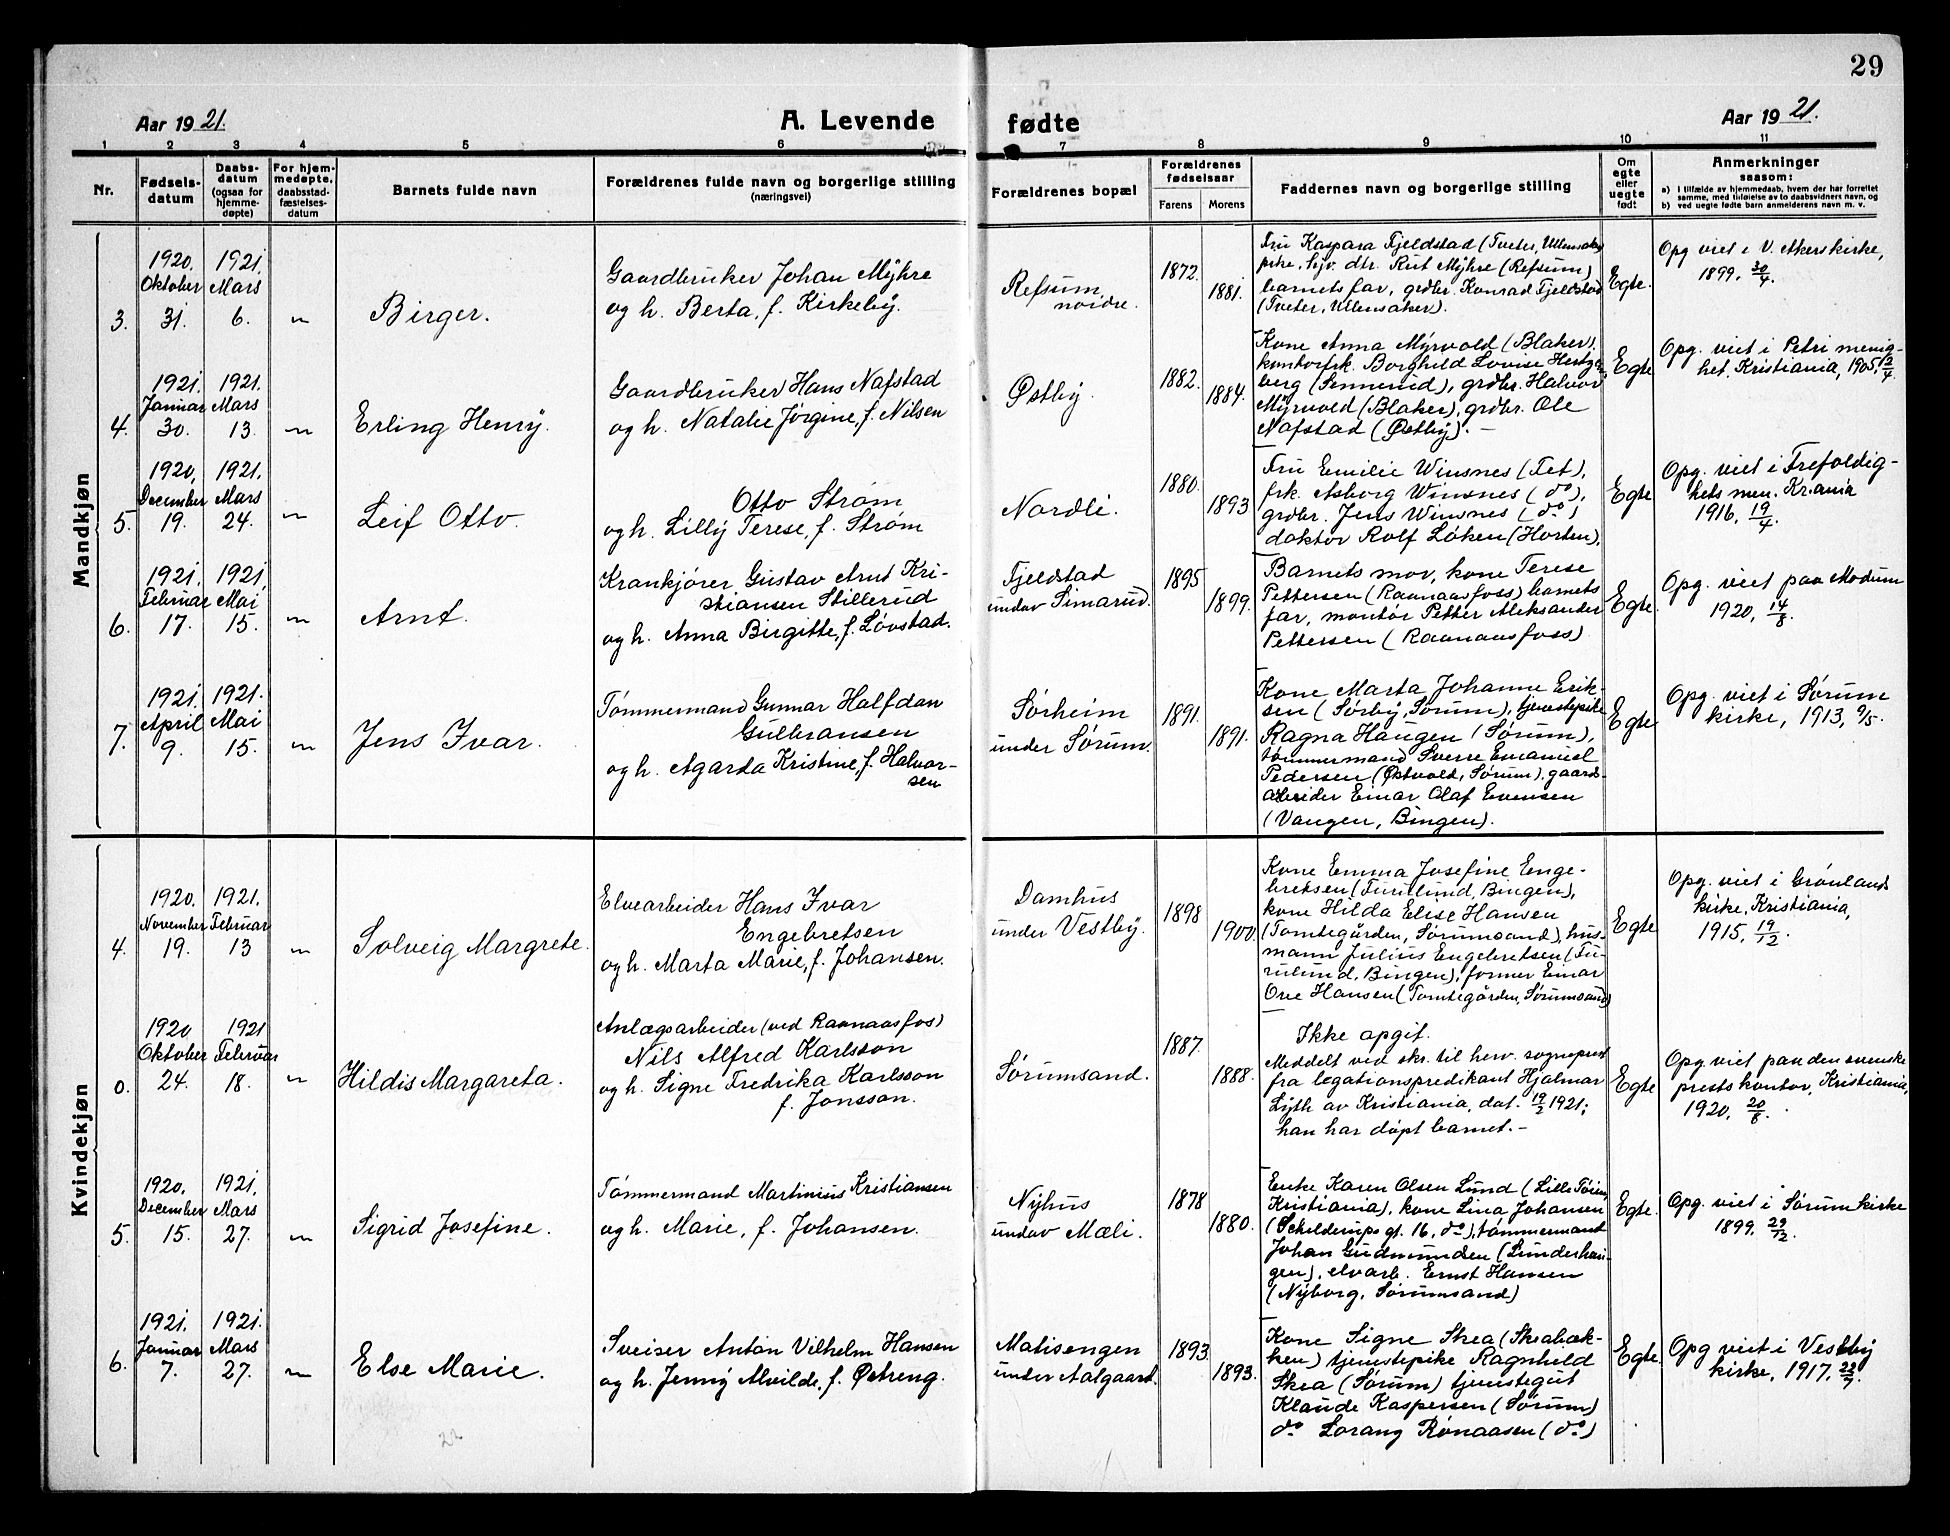 29
Aar 1921.
A. Levende
fødte
Aar 1921.
1 2 3 4 5 6 7 8 9 10 11
Nr.
Fødsels-
datum
Daabs-
datum
(ogsaa for
hjemme-
døpte)
For hjem-
medøpte,
daabsstad-
fæstelses-
datum
Barnets fulde navn
Forældrenes fulde navn og borgerlige stilling
(næringsvei)
Forældrenes bopæl
Forældrenes
fødselsaar
Farens Morens
Faddernes navn og borgerlige stilling
Om
egte
eller
uegte
født
Anmerkninger
saasom:
a) i tilfælde av hjemmedaab, hvem der har forrettet
samme, med tilføielse av to daabsvidners navn, og
b) ved uegte fødte barn anmelderens navn m. v.
Mandkjøn
3.
1920.
Oktober
31.
1921.
Mars
6.
"
Birger.
Gaardbruker Johan Myhre
og h. Berta, f. Kirkeby.
Refsum
noidre.
1872.
1881.
Fru Kaspara Fjeldstad (Tveter, Ullensaker)
pike, hjv. dtr. Rut Myhre (Refsum)
barnets far, grdbr. Konrad Fjeldstad
(Tveter, Ullensaker).
Egte.
Opg viet i V. Akers kirke,
1899, 30/4.
4.
1921.
Januar
30.
1921.
Mars
13.
"
Erling Henry.
Gaardbruker Hans Nafstad
og h. Natalie Jørgine, f. Nilsen
Østby.
1882.
1884.
Kone Anna Myrvold (Blaker),
kontorfrk. Borghild Lovise Hertzen-
berg (Sennerud), grdbr. Halvor
Myrvold (Blaker), grdbr. Ole
Nafstad (Østby). -
Egte
Opg. viet i Petri menig-
het, Kristiania, 1905, 2/4.
5.
1920,
December
19.
1921.
Mars
24.
"
Leif Otto.
Otto Strøm
og h. Lilly Terese, f. Strøm
Nordli.
1880.
1893
Fru Emilie Winsnes (Fet),
frk. Asborg Winsnes (do),
grdbr. Jens Winsnes (do)
doktor Rolf Løken (Horten).
Egte
Opg. viet i Trefoldig-
hets men. Kr.ania
1916, 19/4.
6.
1921.
Februar
17.
1921.
Mai
15.
"
Arnt.
Krankjører Gustav Arnt Kri-
stiansen Stillerud
og h. Anna Birgitte, f. Løvstad.
Fjeldstad
under Simarud.
1895
1899.
Barnets mor, kone Terese
Pettersen (Raanaasfoss) barnets
far, montør Petter Aleksander
Pettersen (Raanaasfoss)
Egte.
Opg. viet paa Modum
1920, 14/8.
7.
1921.
April
9.
1921.
Mai
15.
"
Jens Ivar.
Tømmermand Gunnar Halfdan
Gulbransen
og h. Agarda Kristine, f. Halvor-
sen
Sørheim
under Sørum.
1891.
1891.
Kone Marta Johanne Erik-
sen (Sørby, Sørum), tjenestepike
Ragna Haugen (Sørum),
tømmermand Sverre Emanuel
Pedersen (Østvold, Sørum), gaards-
arbeider Einar Olaf Evensen
(Vangen, Bingen).
Egte
Opg. viet i Sørum
kirke, 1913, 9/5.
Kvindekjøn
4.
1920.
November
19.
1921.
Februar
13
"
Solveig Margrete.
Elvearbeider Hans Ivar
Engebretsen
og h. Marta Marie, f. Johansen.
Damhus
under Vestby.
1898
1900.
Kone Emma Josefine Enge-
bretsen (Furulund, Bingen),
kone Hilda Elise Hansen
(Tomtegården, Sørumsand), hus-
mann Julius Engebretsen (Fu-
rulund, Bingen), former Einar
Ove Hansen (Tomtegården, Sørumsand)
Egte
Opg. viet i Grønlands
kirke, Kristiania,
1915, 19/12.
0.
1920
Oktober
24.
1921
Februar
18.
"
Hildis Margareta.
Anlægsarbeider (ved Raanaasfos)
Nils Alfred Karlsson
og h. Signe Fredrika Karlsson
f. Jonsson.
Sørumsand.
1887.
1888.
Ikke opgit.
Meddelt ved skr. til herv. sogneprest
fra legationspredikant Hjalmar
Lyth av Kristiania, dat. 19/2 1921;
han har døpt barnet. -
Egte
Opg. viet paa den svenske
prests kontor, Kristiania,
1920, 20/8.
5.
1920.
December
15.
1921.
Mars
27.
"
Sigrid Josefine.
Tømmermand Martinius Kristiansen
og h. Marie, f. Johansen.
Nyhus
under Mæli.
1878
1880.
Enke Karen Olsen Lund (Lille Tøien,
Kristiania), kone Lina Johansen
(Schilderups gt. 16, do), tømmermand
Johan Gudmundsen (Lunderhau-
gen), elvarb. Ernst Hansen
(Nyborg, Sørumsand)
Egte.
Opg. viet i Sørum kirke
1899, 29/12.
6.
1921.
Januar
7.
1921.
Mars
27.
"
Else Marie.
Sveiser Anton Vilhelm Hansen
og h. Jenny Alvilde, f. Østreng.
Matisengen
under Aalgaard.
1893.
1893.
Kone Signe Skea (Skeabæk-
ken) tjenestepike Ragnhild
Skea (Sørum) tjenestegut
Klaude Kaspersen (Sørum)
do Lorang Rønaasen (do)
Egte.
Opg viet i Vestby
kirke, 1917, 22/7.
22